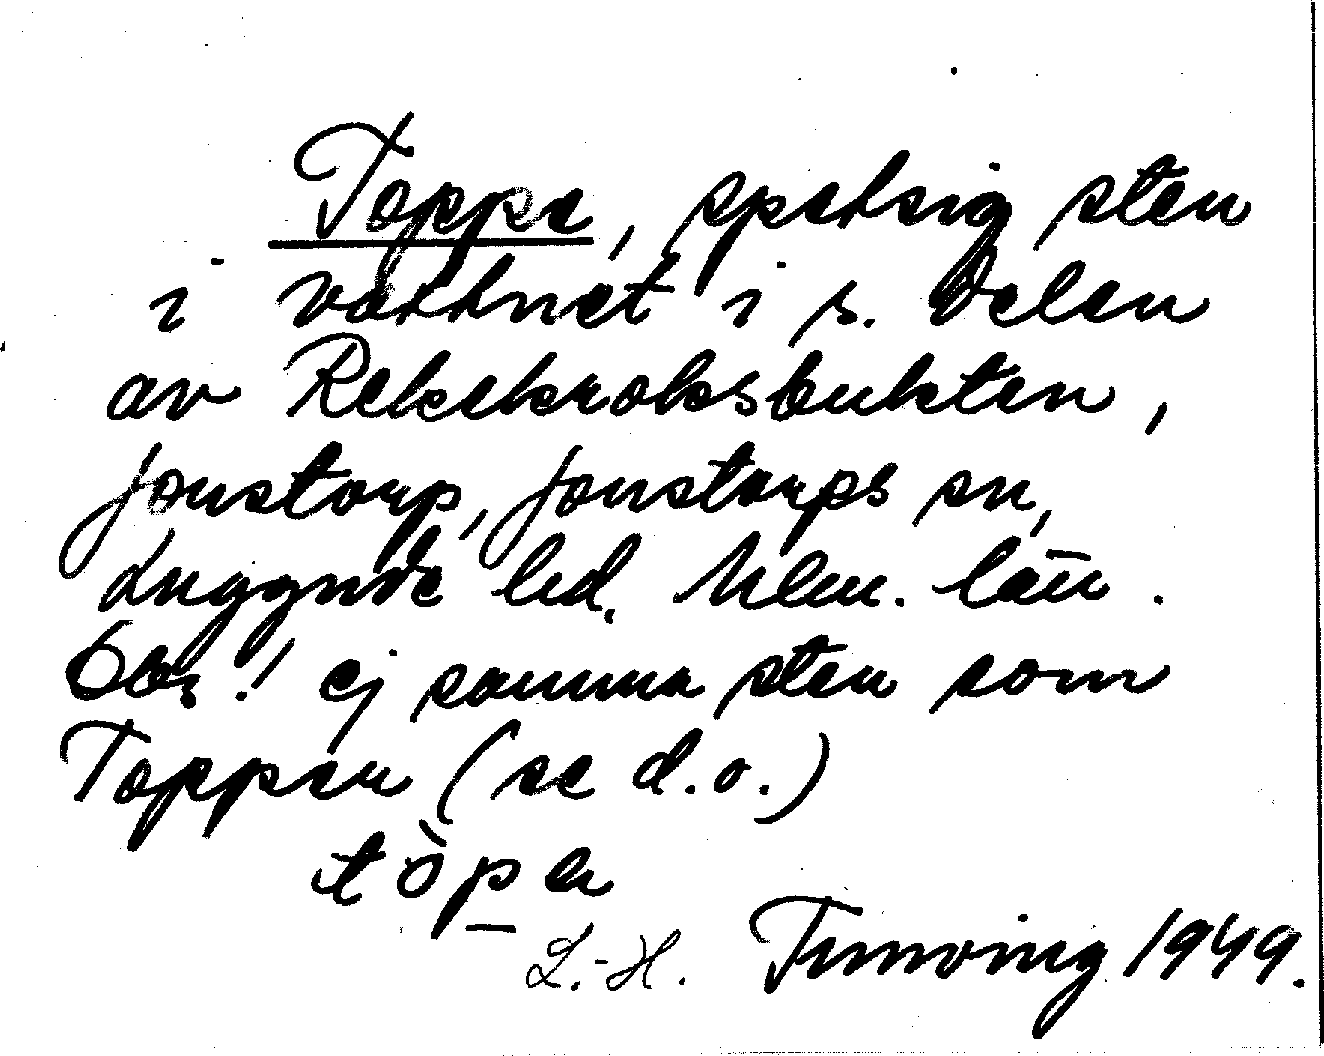 Toppe, spetsig sten
i vattnet i s. delen
av Rekekroksbukten,
Jonstorp, Jonstorps sn,
Luggude hd. Mlm. län.
Obs! ej samma sten som
Toppen (se d.o.)
tòpə
L.-H. Turnving 1949.